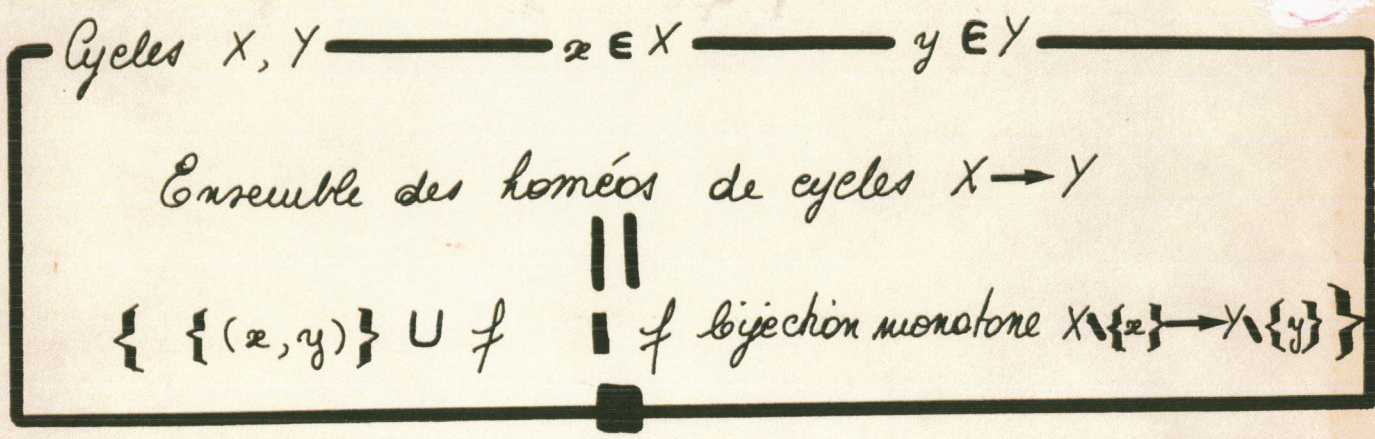 Cycles X, Y x ∈ X y ∈ Y
Ensemble des homéos de cycles X → Y
||
{ {(x, y)} ∪ f | f bijection monotone X\{x} → Y\{y} }